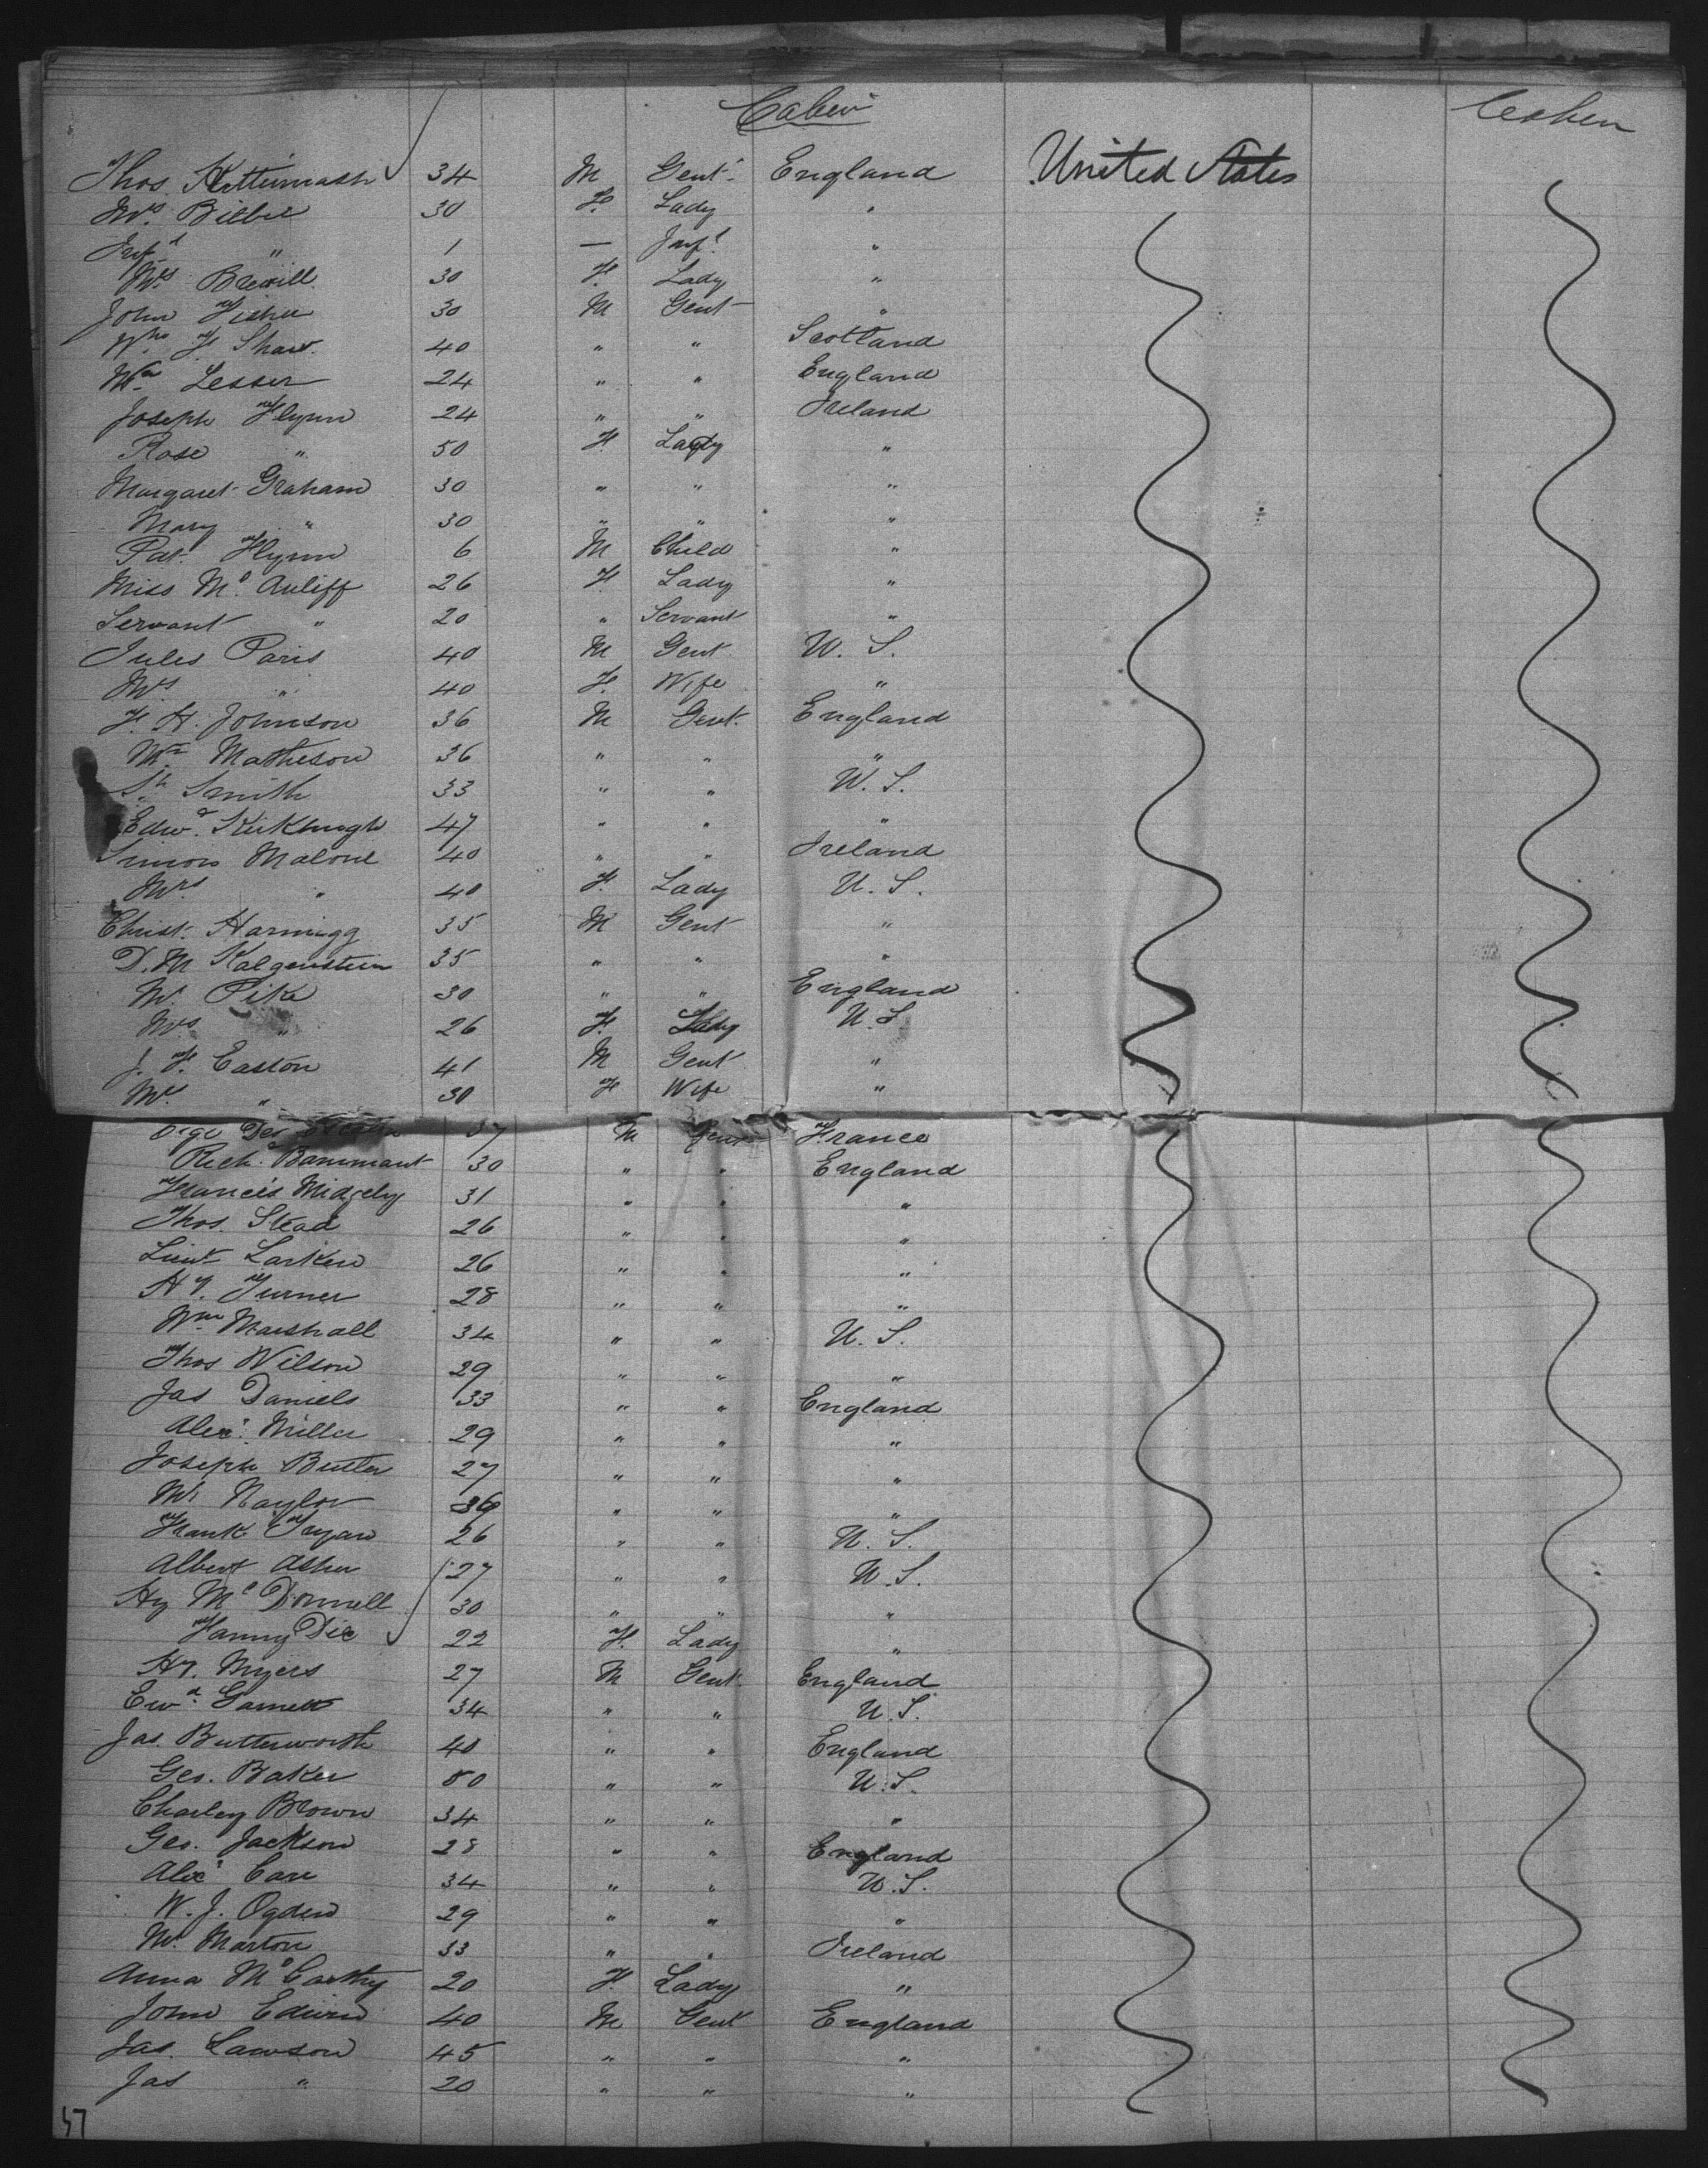 Cabin
Thos. 34 M Gent. England United States
Mrs. Bilbie 30 F. Lady "
Inft " 1 — Inft. "
Mrs. Brewill 30 F. Lady "
John Fisher 30 M Gent "
Wm. F. Shaw. 40 " " Scotland
Wm. Lesser 24 " " England
Joseph Flynn 24 " " Ireland
Rose " 50 F. Lady "
Margaret Graham 30 " " "
Mary " 30 " " "
Pat. Flynn 6 M Child "
Miss Mc. Auliff 26 F. Lady "
Servant " 20 " Servant "
Jules Paris 40 M Gent. U. S.
Mrs " 40 F. Wife "
F. H. Johnson 36 M Gent. England
Wm. Matheson 36 " " "
Smith 33 " " U. S.
Edwd. 47 " " "
Simon Malone 40 " " Ireland
Mrs. " 40 F. Lady U. S.
Christ. 35 M Gent "
D. M 35 " " "
Mr. Pike 30 " " England
Mrs " 26 F. Lady U. S
J. F. Easton 41 M Gent "
Mrs. " 30 F Wife "
Des 37 M Gent France
Richd. Bammant 30 " " England
Francis Midgely 31 " " "
Thos. Stead 26 " " "
Lieut. Larken 26 " " "
Hy. Turner 28 " " "
Wm. Marshall 34 " " U. S.
Thos Wilson 29 " " "
Jas Daniels 33 " " England
Alexr. Miller 29 " " "
Joseph Butler 27 " " "
Mr. Naylor 36 " " "
Frank 26 " " U. S.
Albert Asher 27 " " U. S.
Hy Mc Donnell 30 " " "
Fanny Dix 22 F. Lady "
Hy. Myers 27 M Gent. England
Ewd. Garnett 34 " " U. S.
Jas. Butterworth 40 " " England
Geo. Baker 50 " " U. S.
Charley Brown 34 " " "
Geo. Jackson 28 " " England
Alexr Carr 34 " " U. S.
W. J. Ogden 29 " " "
Mr. Marton 33 " " Ireland
Anna Mc Carthy 20 F. Lady "
John Edwin 40 M Gent England
Jas. Lawson 45 " " "
Jas " 20 " " "
57